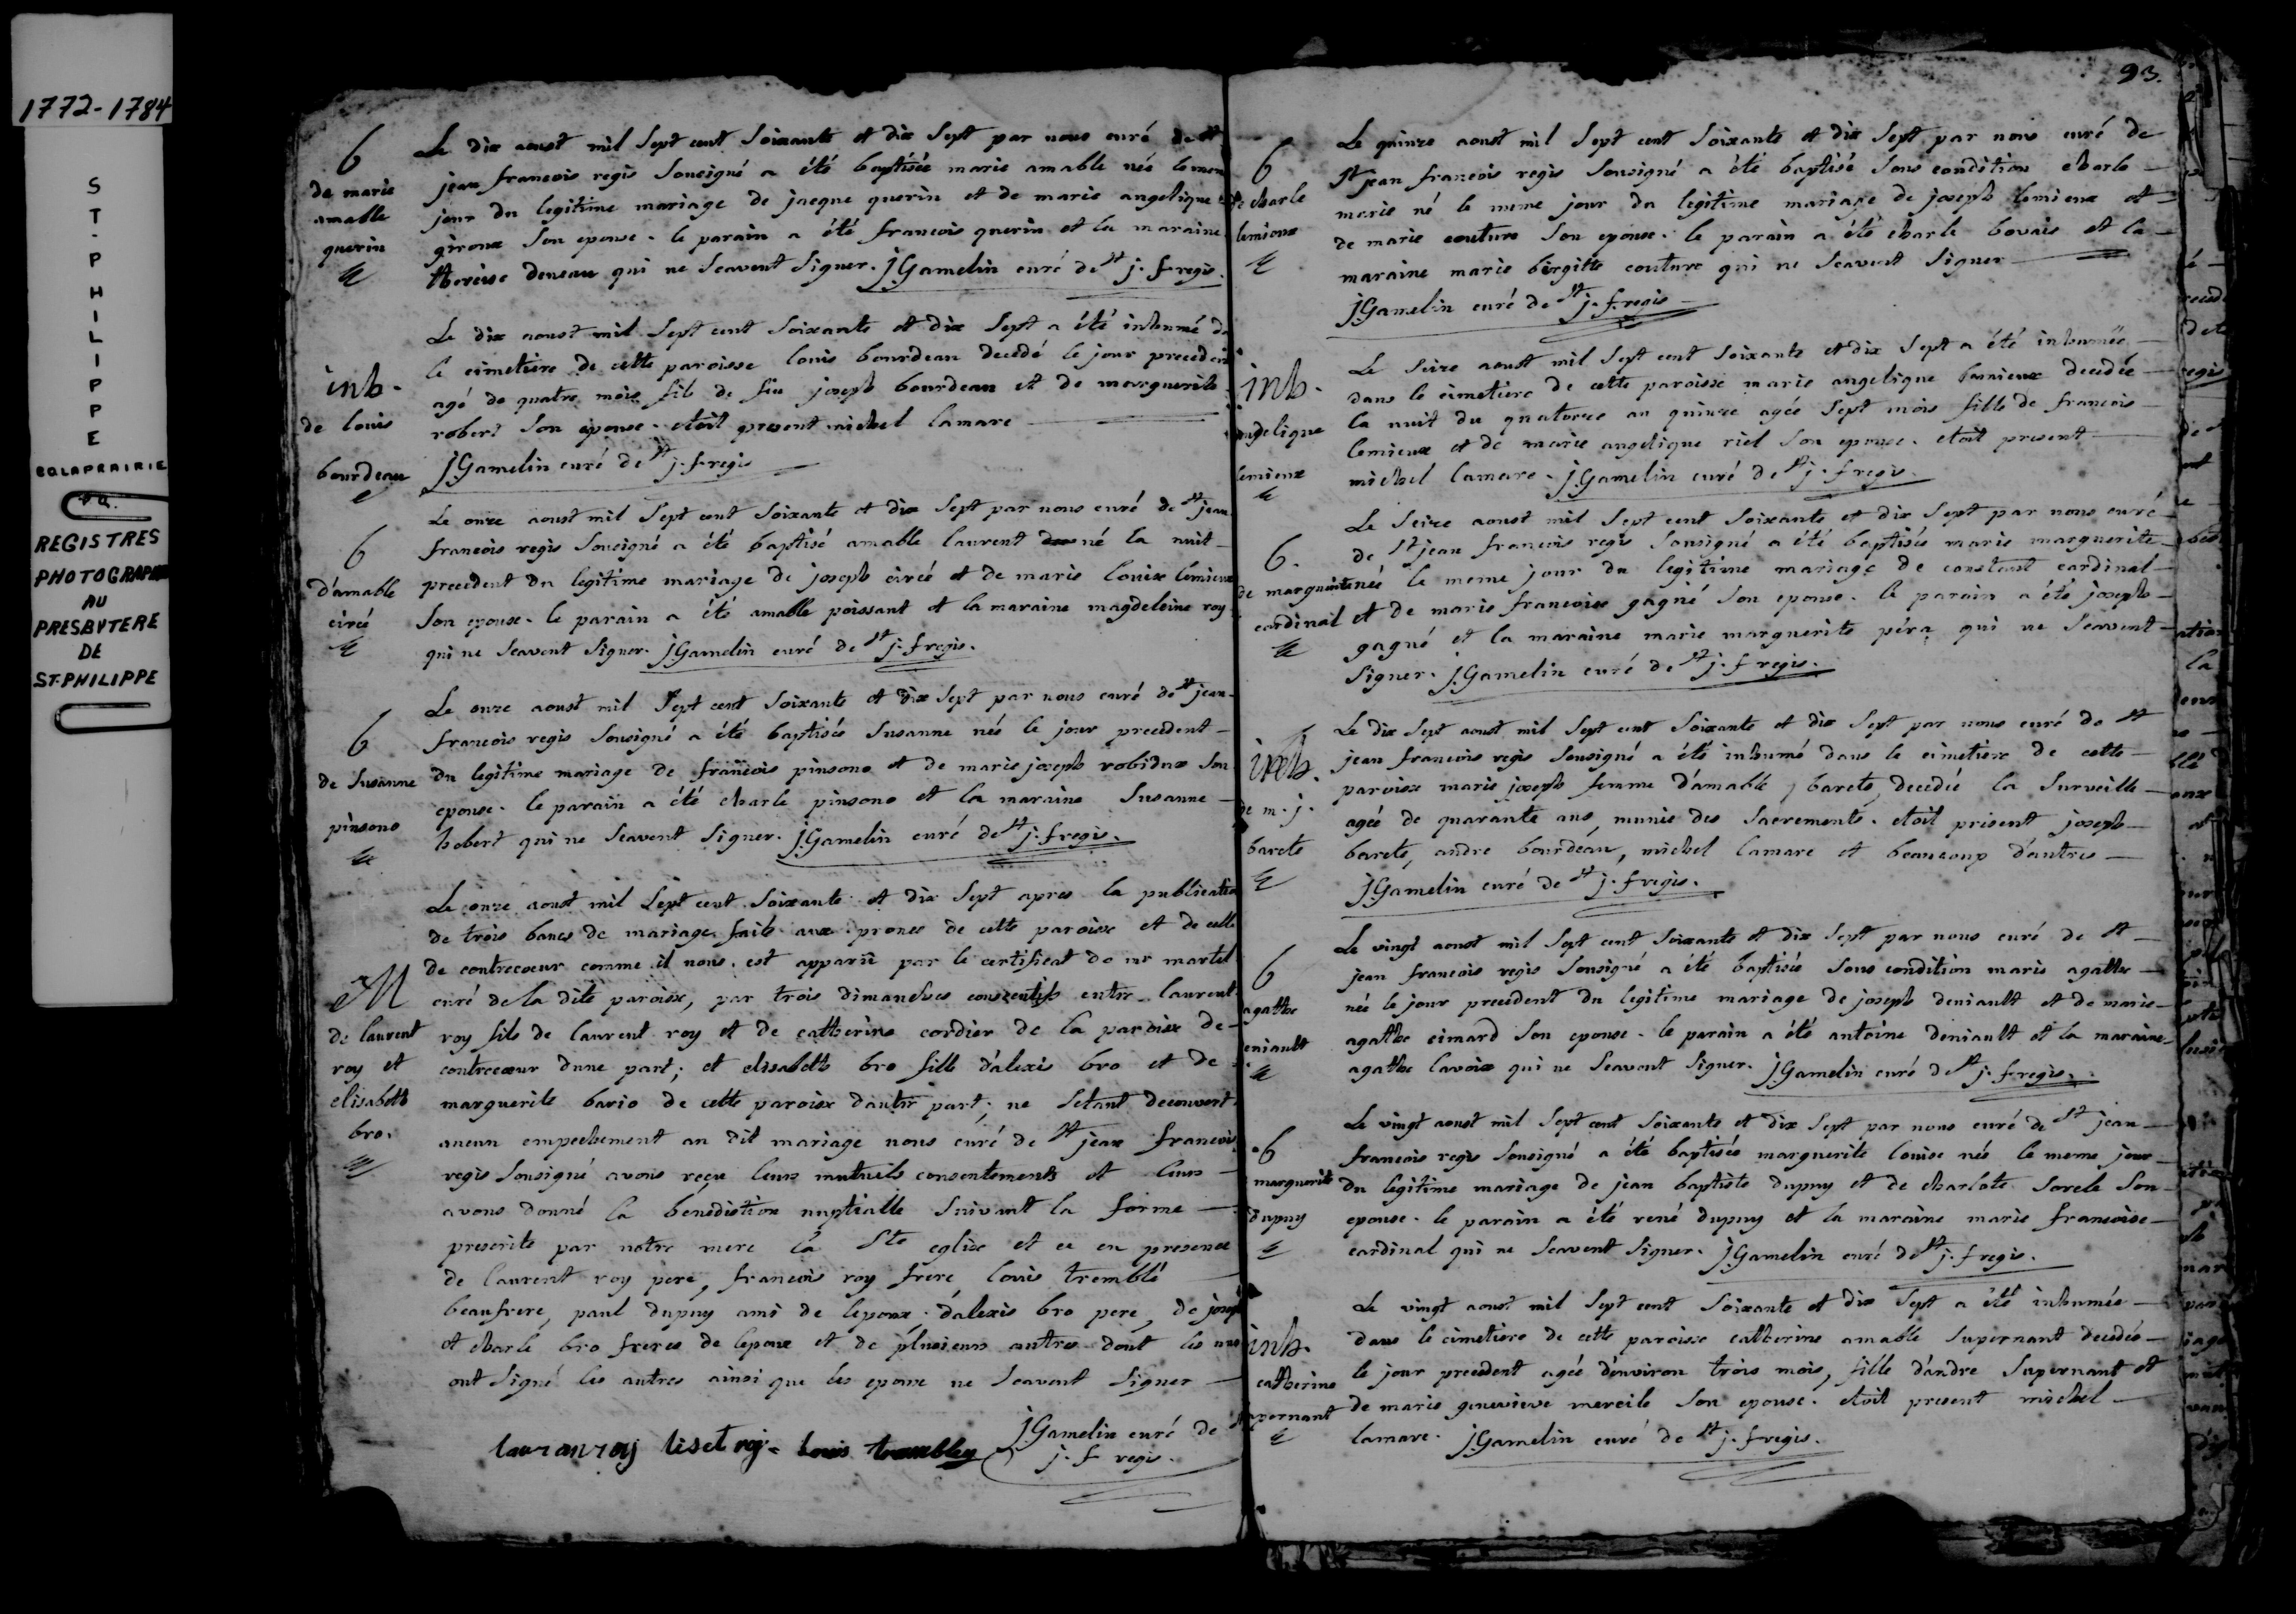 1772-1784
ST-PHILIPPE
CO LAPRAIRIE
REGISTRES
PHOTOGRAPHIÉ
AU
PRESBYTERE
DE
ST-PHILIPPE
6
de marie
amable
querin
Le dix aoust mil Sept cent Soixante et dix Sept par nous curé de St
jean francois regis Sousigné a été baptisée marie amable née le mem
jour du legitime mariage de jacque querin et de marie angelique
giroux Son epouse. le parain a été francois querin et la maraine
therese deneau qui ne Scavent Signer. JGamelin curé de St j. f regis.
inh.
de louis
bourdeau
Le dix aoust mil Sept cent Soixante et dix Sept a été inhumé d
le cimetiere de cette paroisse louis bourdeau decedé le jour preceden
agé de quatre mois fils de feu joseph bourdeau et de marguerite
robert Son epouse. etoit present michel lamare
JGamelin curé de St j. f regis
6
d'amable
circé
Le onze aoust mil Sept cent Soixante et dix Sept par nous curé de St jean
francois regis Sousigné a été baptisé amable laurent né la nuit
precedent du legitime mariage de joseph circé et de marie louise lemieux
Son epouse. le parain a été amable poissant et la maraine magdeleine roy
qui ne Scavent Signer. JGamelin curé de St j. f regis.
6
de Susanne
pinsono
Le onze aoust mil Sept cent Soixante et dix Sept par nous curé de St jean
francois regis Sousigné a été baptisée Susanne née le jour precedent
du legitime mariage de francois pinsono et de marie joseph robidux Son
epouse. le parain a été charle pinsono et la maraine Susanne
hebert qui ne Scavent Signer. JGamelin curé de St j. f regis.
M
de laurent
roy et
elisabeth
bro.
Le onze aoust mil Sept cent Soixante et dix Sept apres la publication
de trois bancs de mariage faits aux prones de cette paroisse et de celle
de contrecoeur comme il nous est apparü par le certificat de mr martel
curé de la dite paroisse, par trois dimanches entre laurent
roy fils de laurent roy et de catherine cordier de la paroisse de
contrecoeur dune part; et elisabeth bro fille d'alexis bro et de
marguerite bario de cette paroisse dautre part; ne Setant decouvert
aucun empechement au dit mariage nous curé de St jean francois
regis Sousigné avons reçu leurs mutuels consentements et leurs
avons donné la bénédiction nuptialle Suivant la forme
prescrite par notre mere la Ste eglise et ce en presence
de laurent roy pere, francois roy frere, louis tremblé
beaufrere, paul dupuy ami de lepoux; d'alexis bro pere, de joseph
et charle bro freres de lepouse et de plusieurs autres dont les uns
ont Signé les autres ainsi que les epoux ne Scavent Signer
lauranroy liset roy louis trembley JGamelin curé de St
j. f regis.
93.
6
de charle
lemieux
Le quinze aoust mil Sept cent Soixante et dix Sept par nous curé de
St jean francois regis Sousigné a été baptisé Sous condition charle
marie né le meme jour du legitime mariage de joseph lemieux et
de marie couture Son epouse. le parain a été charle bovais et la
maraine marie birgitte couture qui ne Scavent Signer
JGamelin curé de St j. f regis
inh.
angelique
lemieux
Le Seize aoust mil Sept cent Soixante et dix Sept a été inhumée
dans le cimetiere de cette paroisse marie angelique lemieux decedée
la nuit du quatorze au quinze agée Sept mois fille de francois
lemieux et de marie angelique riel Son epouse. etoit present
michel lamare. JGamelin curé de St j. f regis.
6.
de marguerite
cardinal
Le Seize aoust mil Sept cent Soixante et dix Sept par nous curé
de St jean francois regis Sousigné a été baptisée marie marguerite
née le meme jour du legitime mariage de constant cardinal
et de marie francoise gagné Son epouse. le parain a été joseph
gagné et la maraine marie marguerite péra qui ne Scavent
Signer. JGamelin curé de St j. f regis.
inh.
de m. j.
barete
Le dix Sept aoust mil Sept cent Soixante et dix Sept par nous curé de St
jean francois regis Sousigné a été inhumé dans le cimetiere de cette
paroisse marie joseph femme d'amable barete, decedée la Surveille
agée de quarante ans, munie des Sacrements. etoit present joseph
barete, andre bourdeau, michel lamare et beaucoup d'autres
JGamelin curé de St j. f regis.
6
agathe
eniault
Le vingt aoust mil Sept cent Soixante et dix Sept par nous curé de St
jean francois regis Sousigné a été baptisée Sous condition marie agathe
née le jour precedent du legitime mariage de joseph deniault et de marie
agathe cimard Son epouse. le parain a été antoine deniault et la maraine
agathe lavoix qui ne Scavent Signer. JGamelin curé de St j. f regis.
6
marguerite
dupuy
Le vingt aoust mil Sept cent Soixante et dix Sept par nous curé de St jean
francois regis Sousigné a été baptisée marguerite louise née le meme jour
du legitime mariage de jean baptiste dupuy et de charlote Sorele Son
epouse. le parain a été rené dupuy et la maraine marie francoise
cardinal qui ne Scavent Signer. JGamelin curé de St j. f regis.
inh.
catherine
Supernant
Le vingt aoust mil Sept cent Soixante et dix Sept a été inhumée
dans le cimetiere de cette paroisse catherine amable Supernant decedée
le jour precedent agée d'environ trois mois, fille d'andre Supernant et
de marie genevieve mercile Son epouse. etoit present michel
lamare. JGamelin curé de St j. f regis.